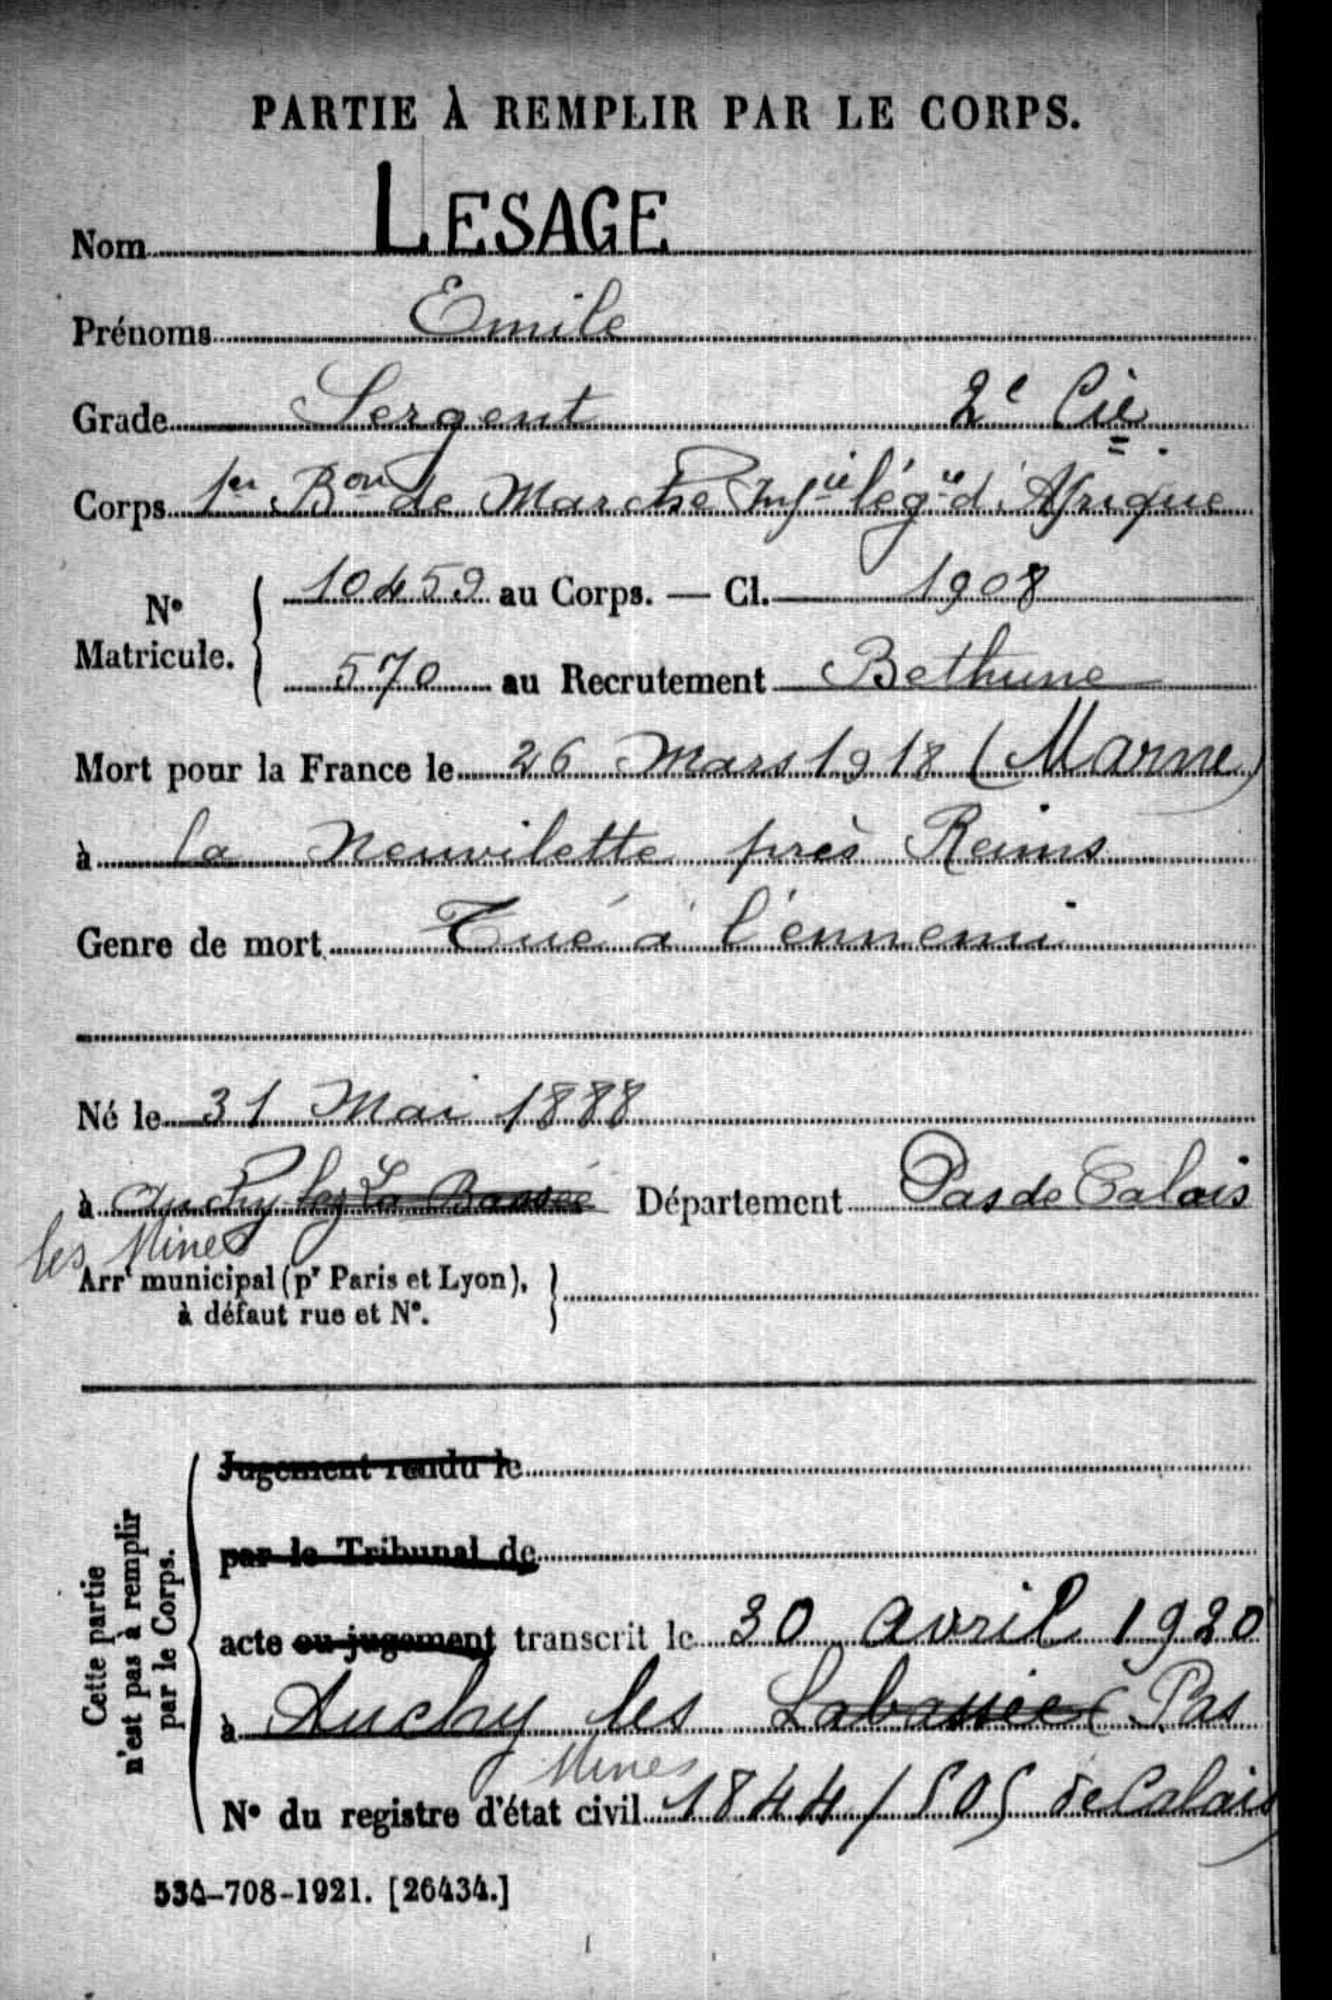 PARTIE À REMPLIR PAR LE CORPS.
Nom LESAGE
Prénoms Emile
Grade Sergent 2e Cie
Corps 1er Bon de Marche Infie légre d'Afrique
No Matricule. 10459 au Corps. — Cl. 1908
570 au Recrutement Bethune
Mort pour la France le 26 Mars 1918 (Marne)
à la Neuvilette près Reims
Genre de mort Tué à l'ennemi
Né le 31 Mai 1888
à Auchy lez La Bassée Département Pas de Calais
les Mines
Arrt municipal (pr Paris et Lyon),
à défaut rue et No.
Cette partie
n'est pas à remplir
par le Corps.
Jugement rendu le
par le Tribunal de
acte ou jugement transcrit le 30 avril 1920
à Auchy les Labassée (Pas
Mines
No du registre d'état civil 1844/505 de Calais)
534-708-1921. [26434.]